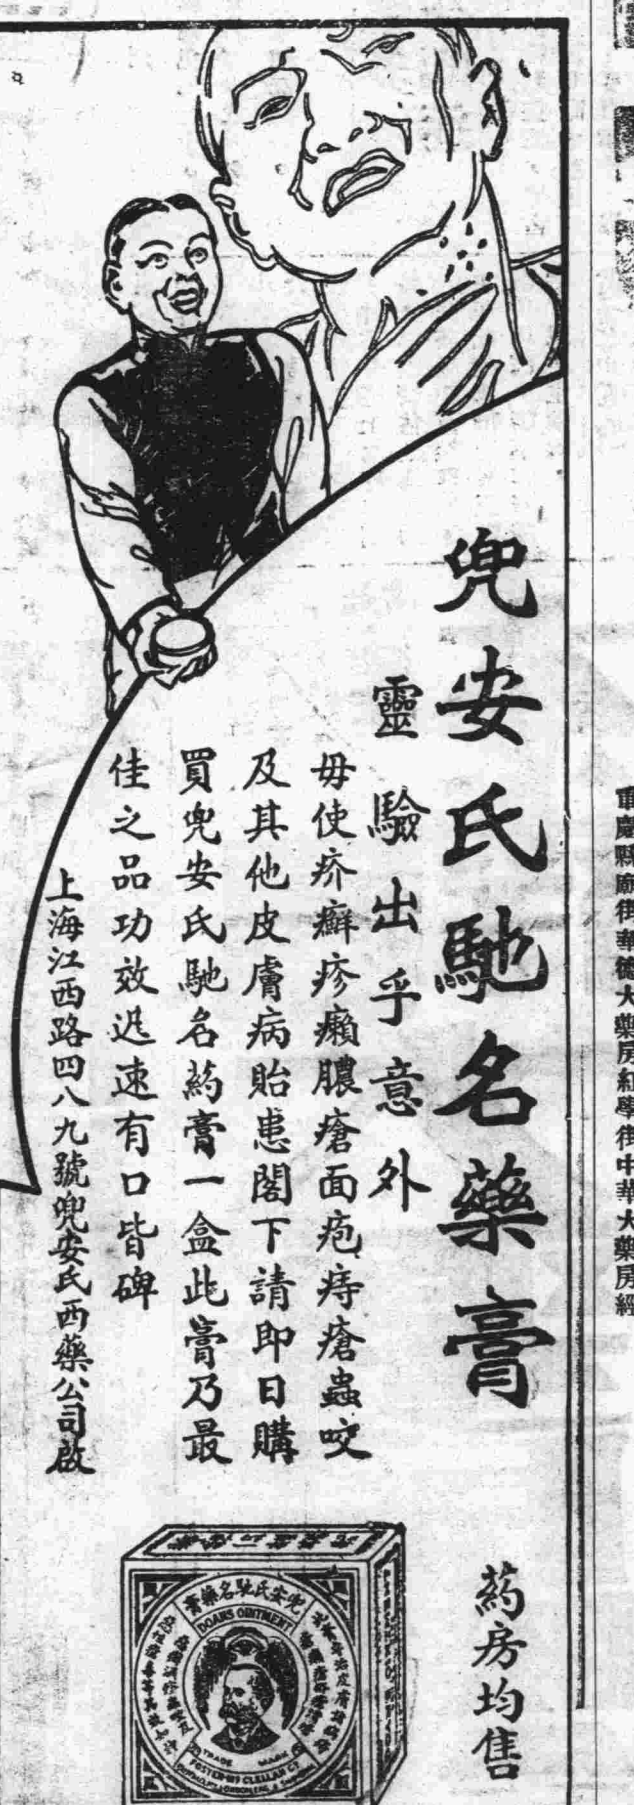 兜安氏馳名藥膏
靈驗出乎意外
毋使疥癬疹癩膿瘡面疱痔瘡蟲咬
及其他皮膚病貽患閣下請即日購
買兜安氏馳名葯膏一盒此膏乃最
佳之品功效迅速有口皆碑
上海江西路四八九號兜安氏西藥公司啟
葯房均售
兜安氏馳名藥膏
DOANS OINTMENT
TRADE MARK
FOSTER-MCCLELLAN Cº
重慶縣廟街華德大藥房紅學街中華大藥房經